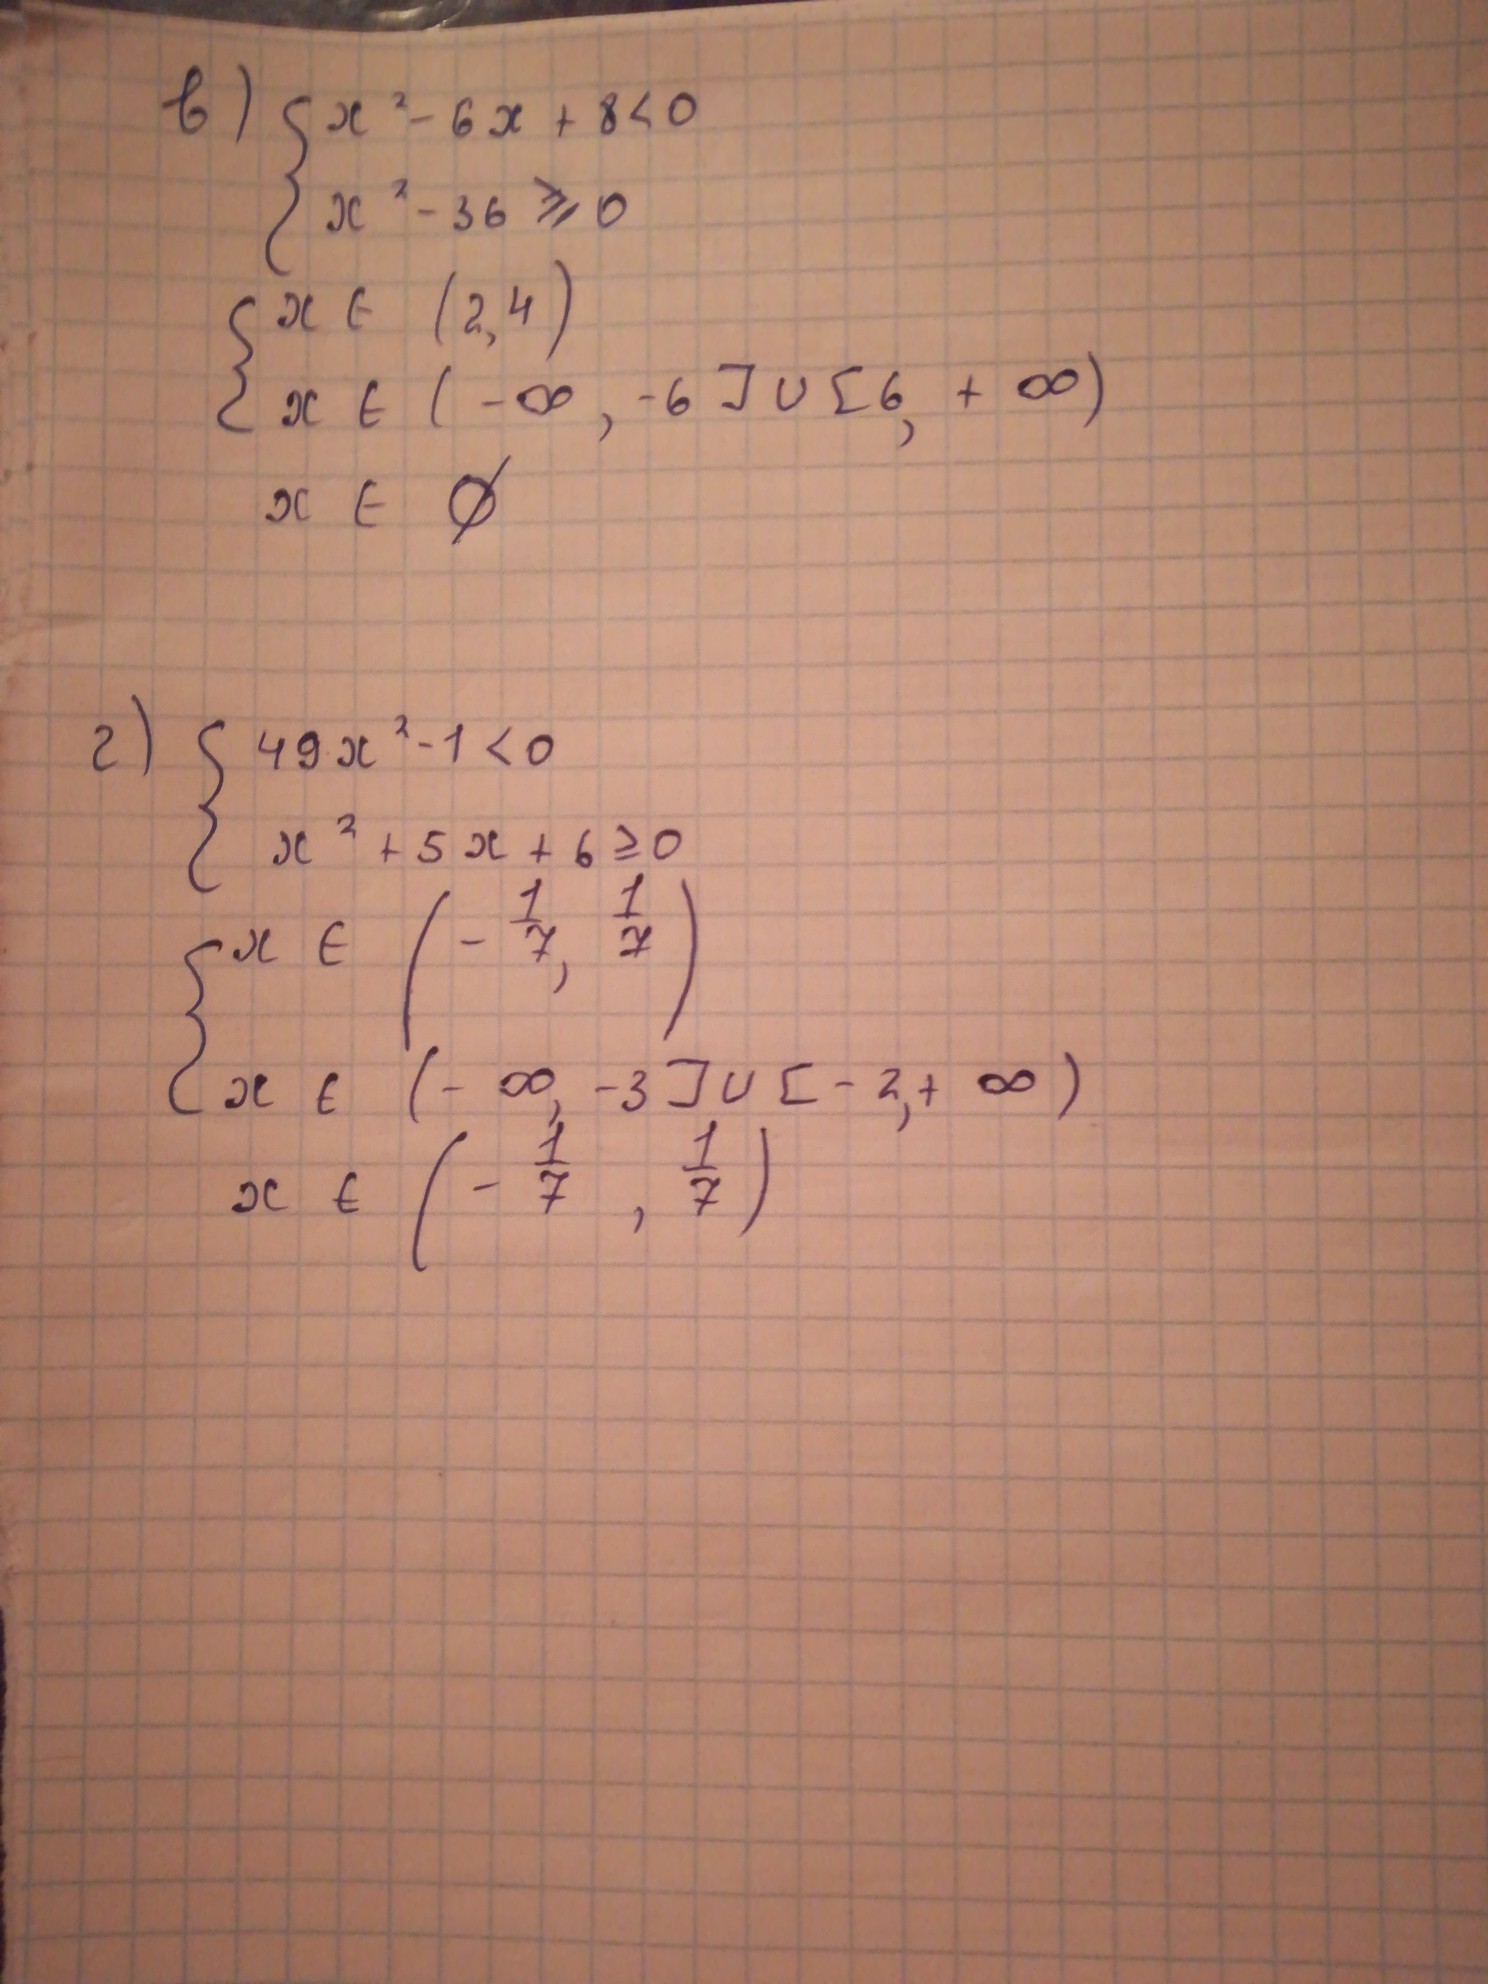 в) { x² - 6x + 8 < 0
x² - 36 ⩾ 0
{ x ∈ (2, 4)
x ∈ (-∞, -6] ∪ [6, +∞)
x ∈ ∅
г) { 49x² - 1 < 0
x² + 5x + 6 ≥ 0
{ x ∈ (-1/7, 1/7)
x ∈ (-∞, -3] ∪ [-2, +∞)
x ∈ (-1/7, 1/7)